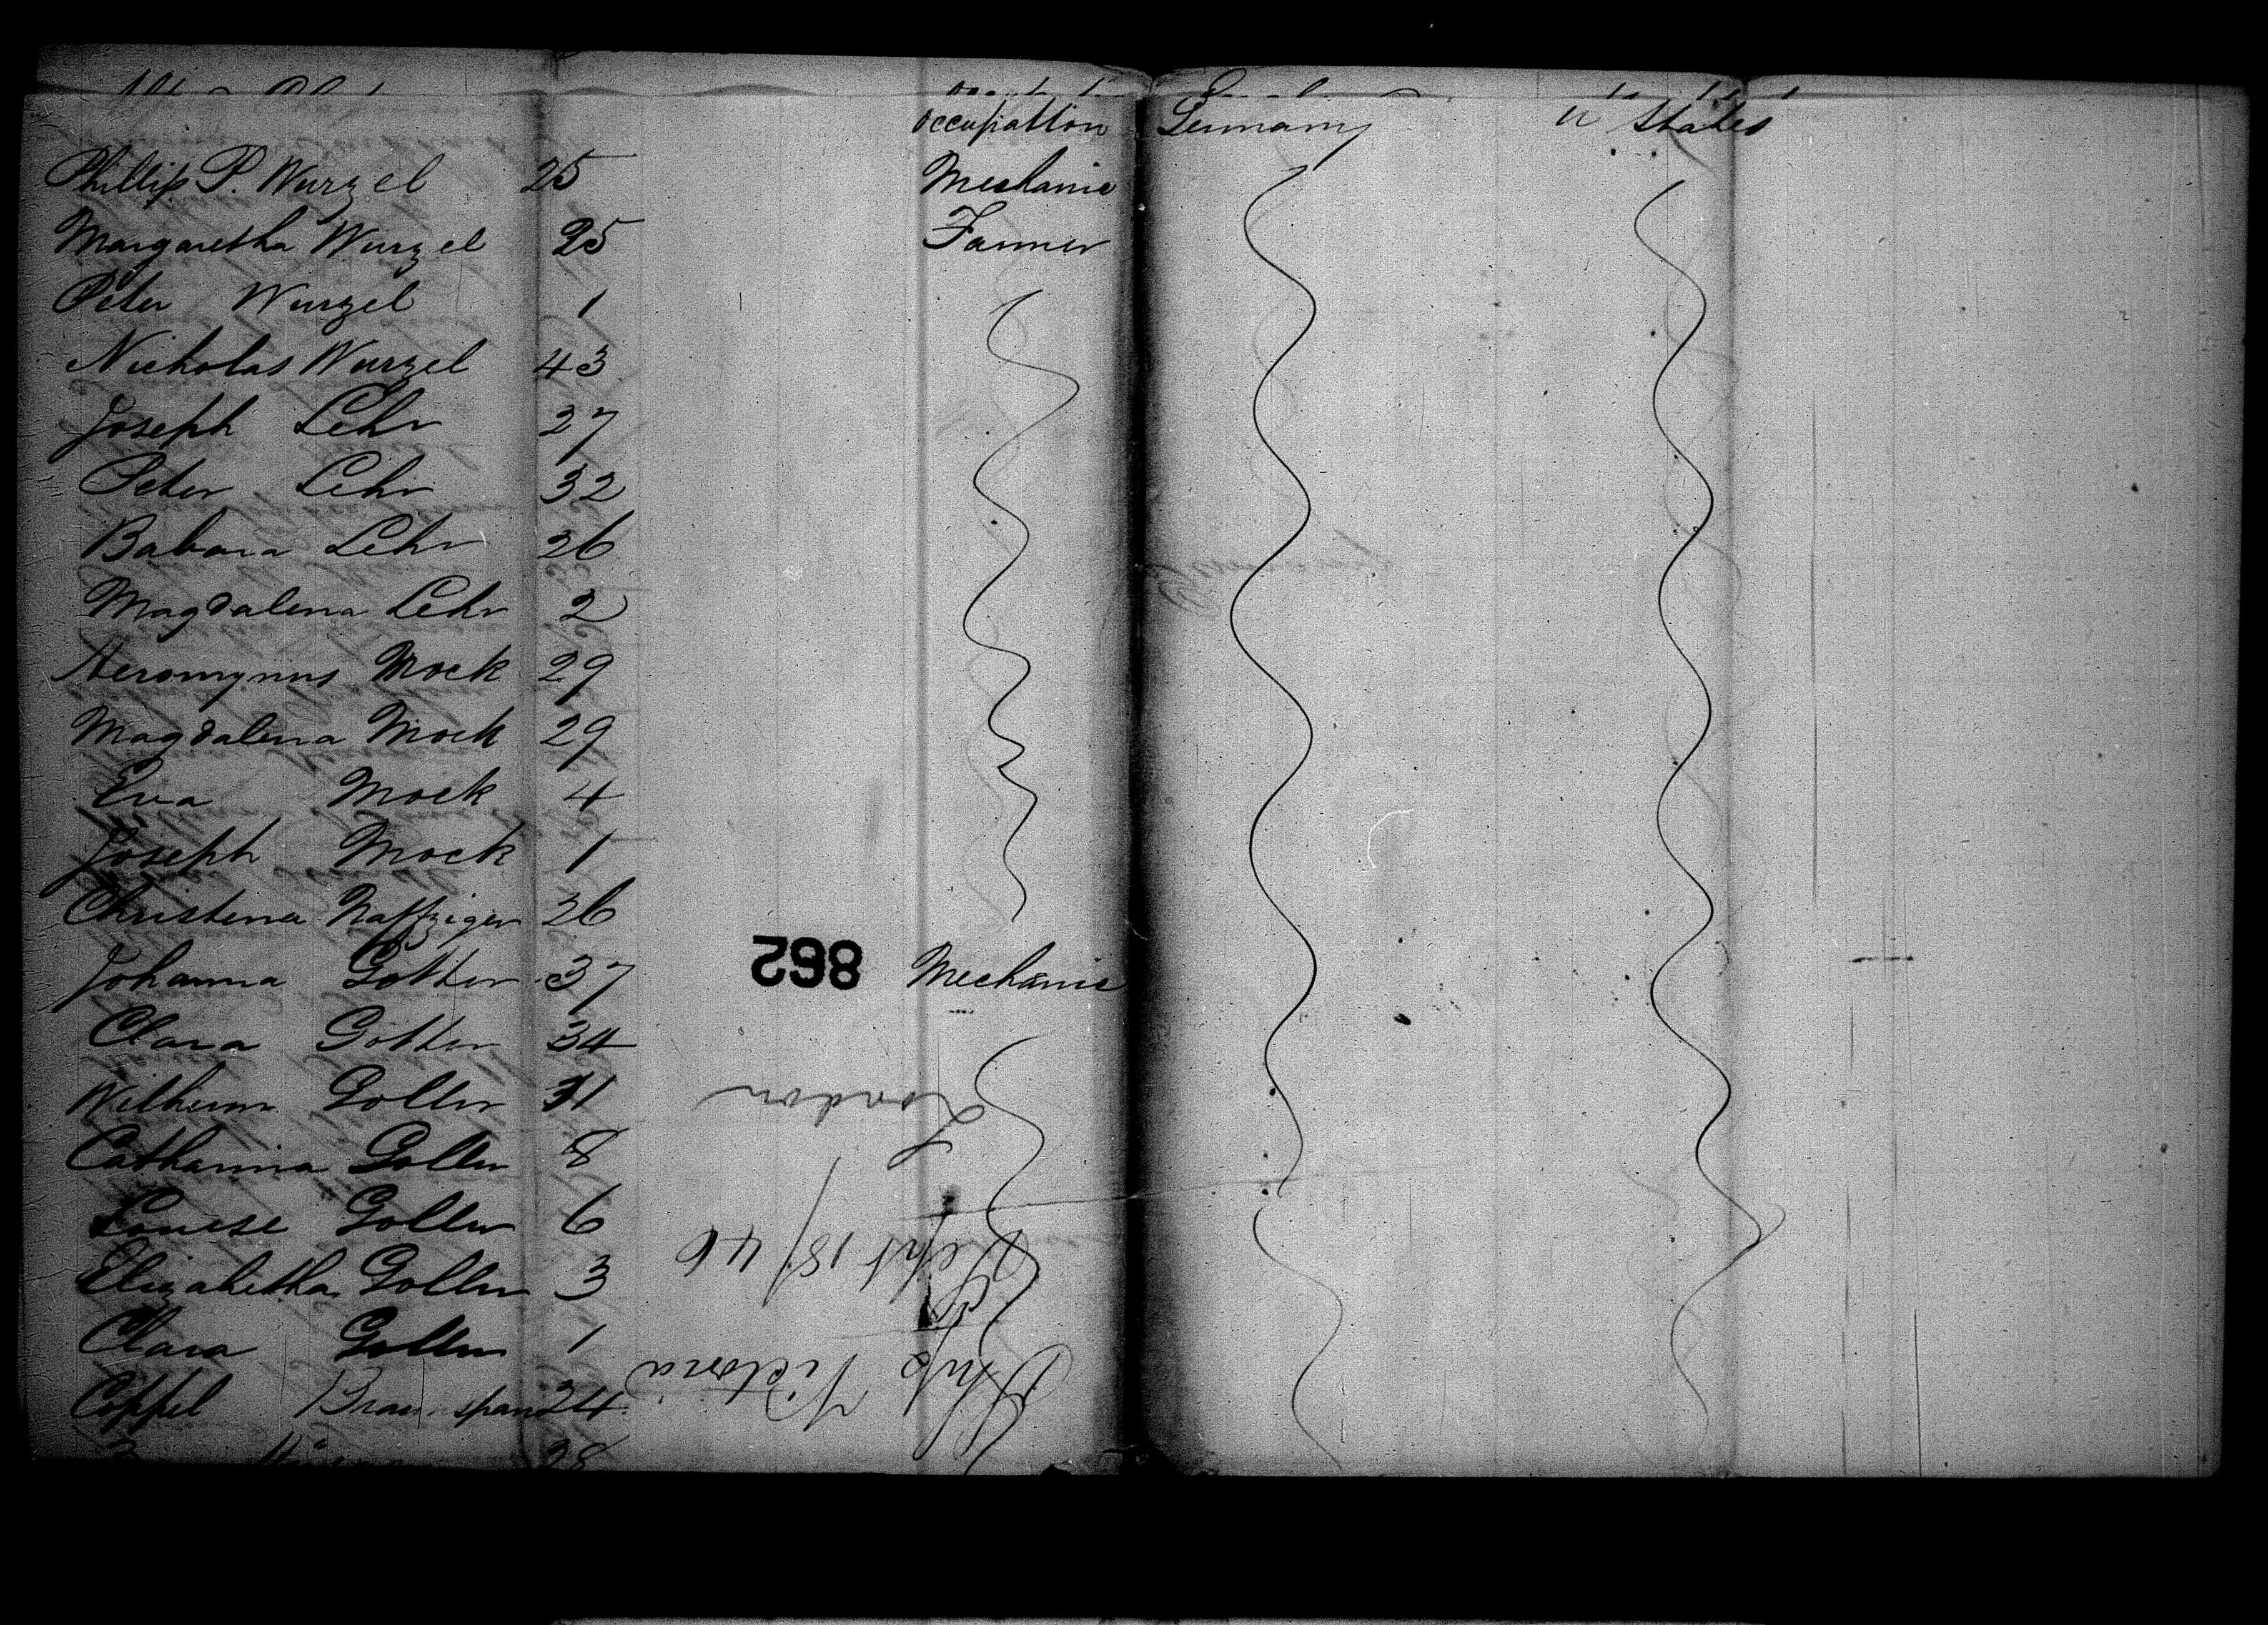 occupation Germany U States
Phillip P. Wurzel 25 Mechanic
Margaretha Wurzel 25 Farmer
Peter Wurzel 1
Nicholas Wurzel 43
Joseph Lehr 27
Peter Lehr 32
Babara Lehr 26
Magdalena Lehr 2
Heromymus Mock 29
Magdalena Mock 29
Eva Mock 4
Joseph Mock 1
Christena Naffziger 26
Johanna Gotter 37 Mechanic
Clara Gotter 34
Wilhemn Goller 31
Catharina Goller 8
Louese Goller 6
Elizabetha Goller 3
Clara Goller 1
Coppel 24
28
862
Ship Victoria
Sept 18/46
London